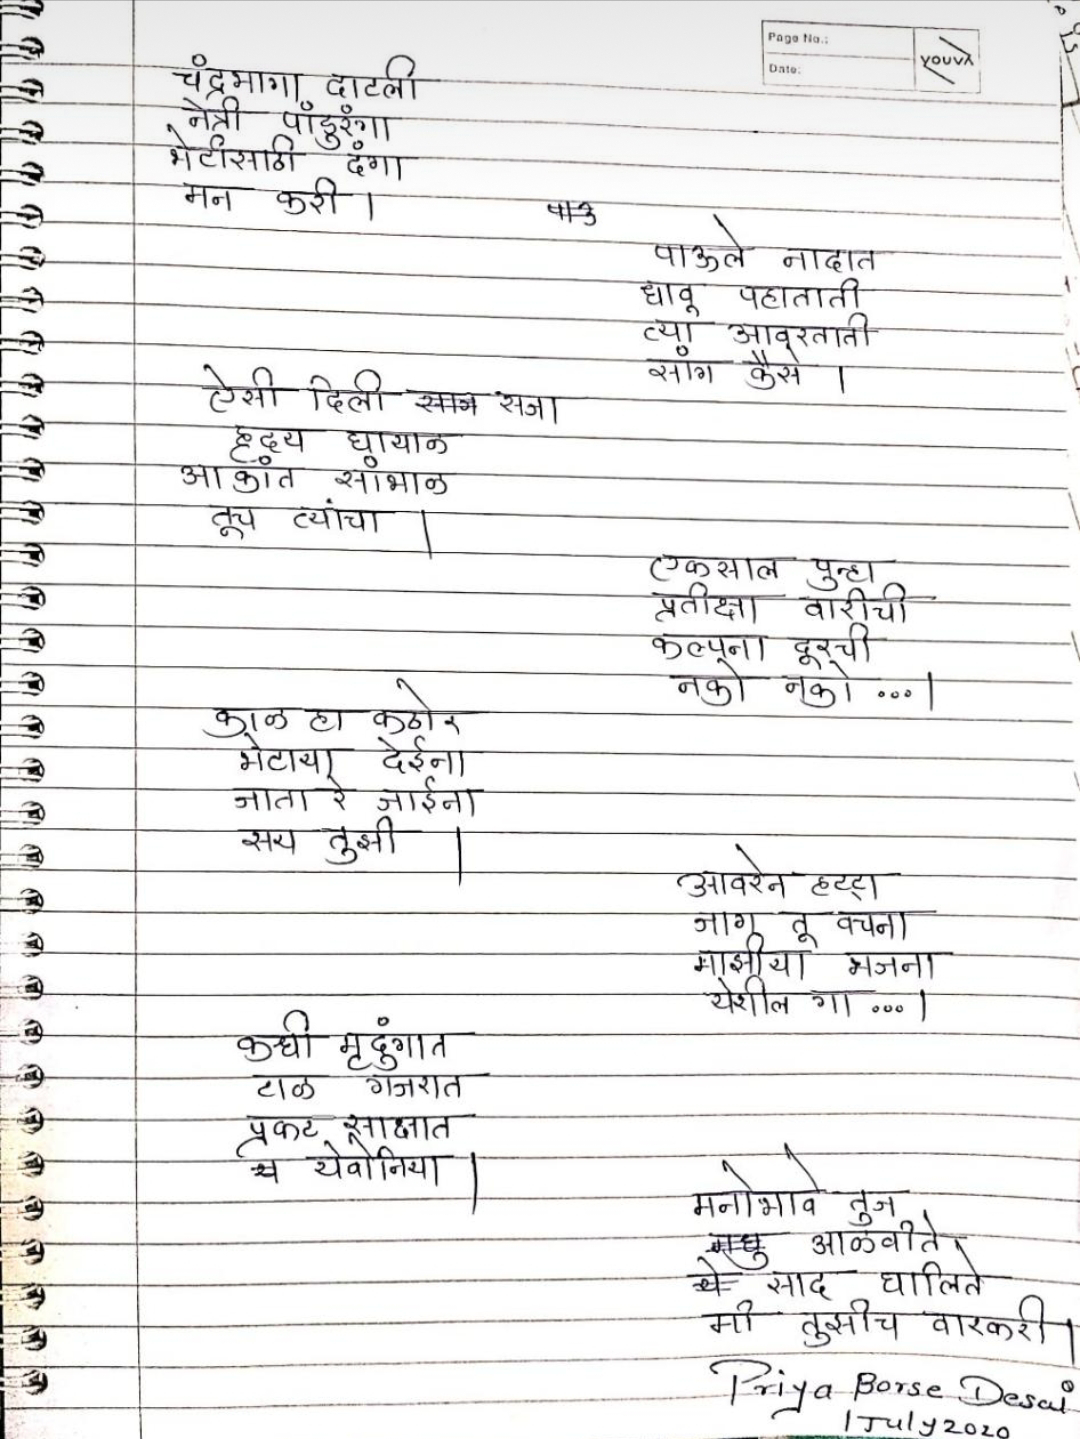 Page No.:
Date:
YOUVA
चंद्रभागा दाटली
नेत्री पांडुरंगा
भेटीसाठी दंगा
मन करी ।
पाउ
पाऊले नादात
धावू पहाताती
त्या आवरताती
सांग कैसे ।
ऐसी दिली सजा
हृदय घायाळ
आकांत सांभाळ
तूच त्यांचा ।
एकसाल पुन्हा
प्रतीक्षा वारीची
कल्पना दूरची
नको नको ...।
काळ हा कठोर
भेटाया देईना
जाता रे जाईना
सय तुझी ।
आवरेन हट्टा
जाग तू वचना
माझीया भजना
येशील गा ...।
कधी मृदुंगात
टाळ गजरात
प्रकट साक्षात
येवोनिया ।
मनोभावे तुज
मधु आळवीते
साद घालिते
मी तुझीच वारकरी ।
Priya Borse Desai
1 July 2020